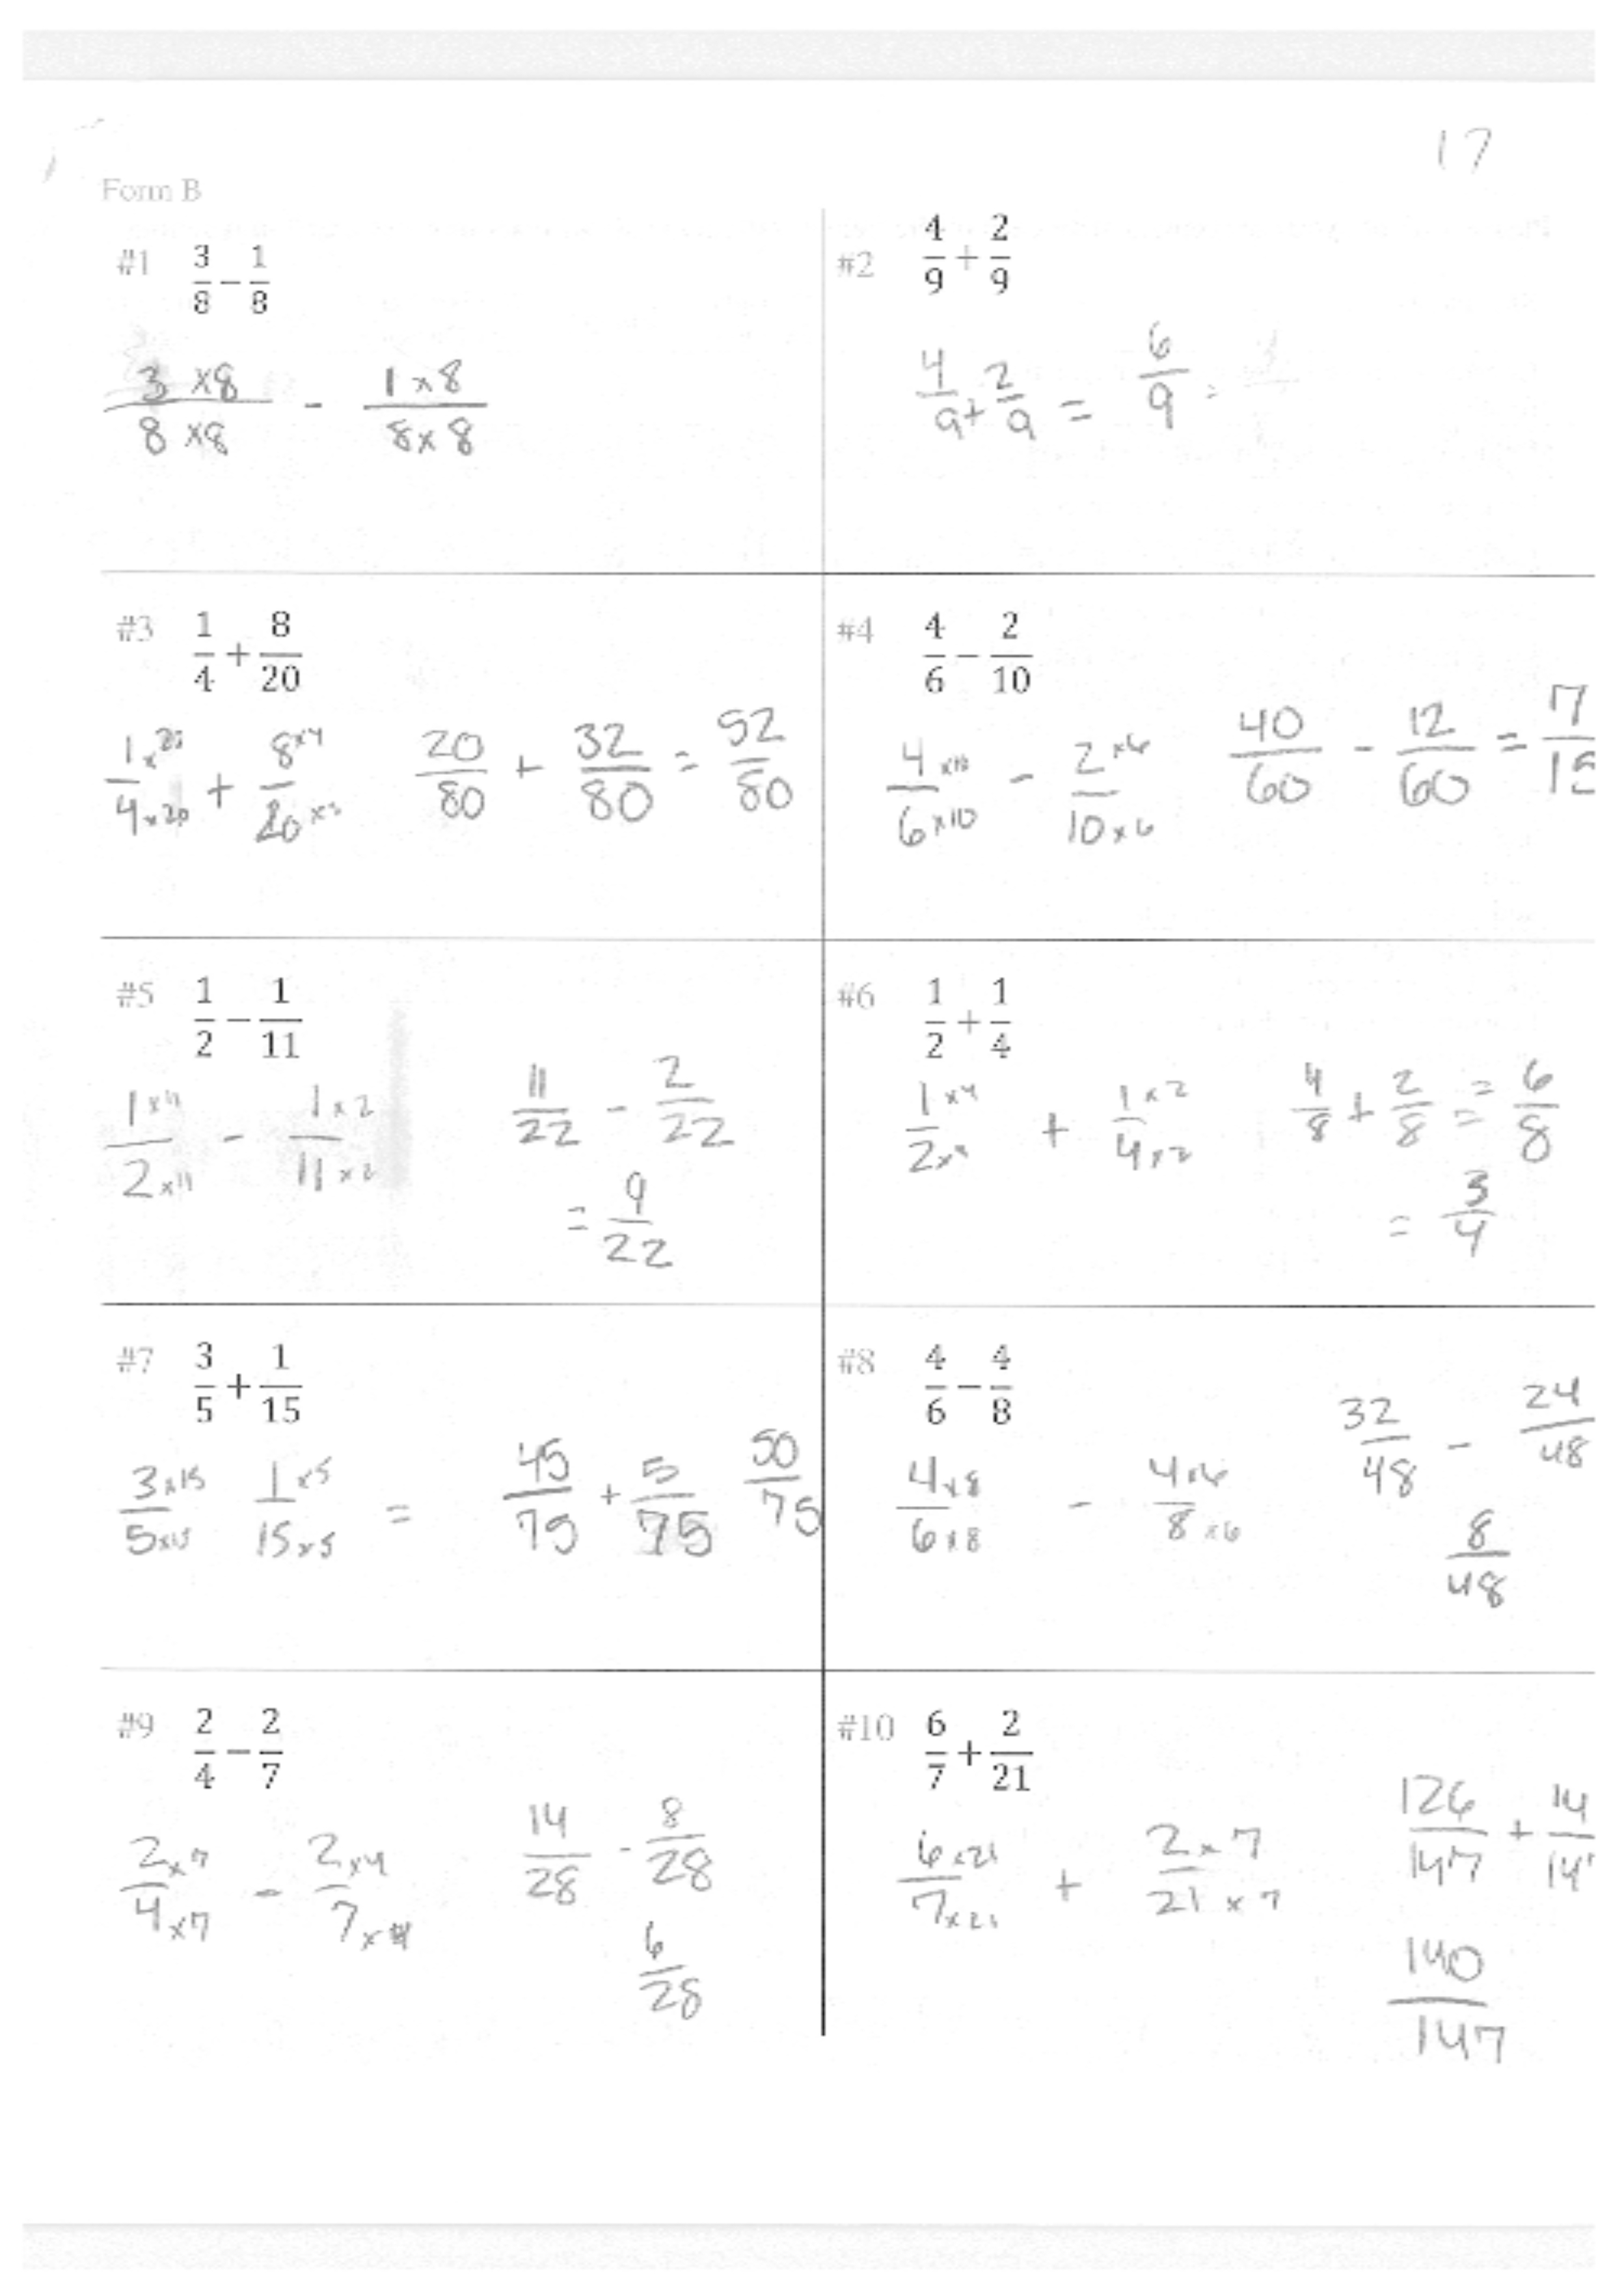 17
Form B
#1 3/8 − 1/8
3 ×8 / 8 ×8 − 1 × 8 / 8 × 8
#2 4/9 + 2/9
4/9 + 2/9 = 6/9 =
#3 1/4 + 8/20
1 ×20 / 4 ×20 + 8 ×4 / 20 20/80 + 32/80 = 52/80
#4 4/6 − 2/10
4 ×10 / 6 ×10 − 2 ×6 / 10 ×6 40/60 − 12/60 = 17/15
#5 1/2 − 1/11
1 ×11 / 2 ×11 − 1 ×2 / 11 ×2 11/22 − 2/22
= 9/22
#6 1/2 + 1/4
1 ×4 / 2 ×4 + 1 ×2 / 4 ×2 4/8 + 2/8 = 6/8
= 3/4
#7 3/5 + 1/15
3 ×15 / 5 ×15 1 ×5 / 15 ×5 = 45/75 + 5/75 50/75
#8 4/6 − 4/8
4 ×8 / 6 ×8 − 4 ×6 / 8 ×6 32/48 − 24/48
8/48
#9 2/4 − 2/7
2 ×7 / 4 ×7 − 2 ×4 / 7 ×4 14/28 - 8/28
6/28
#10 6/7 + 2/21
6 ×21 / 7 ×21 + 2 × 7 / 21 × 7 126/147 + 14/14
140/147